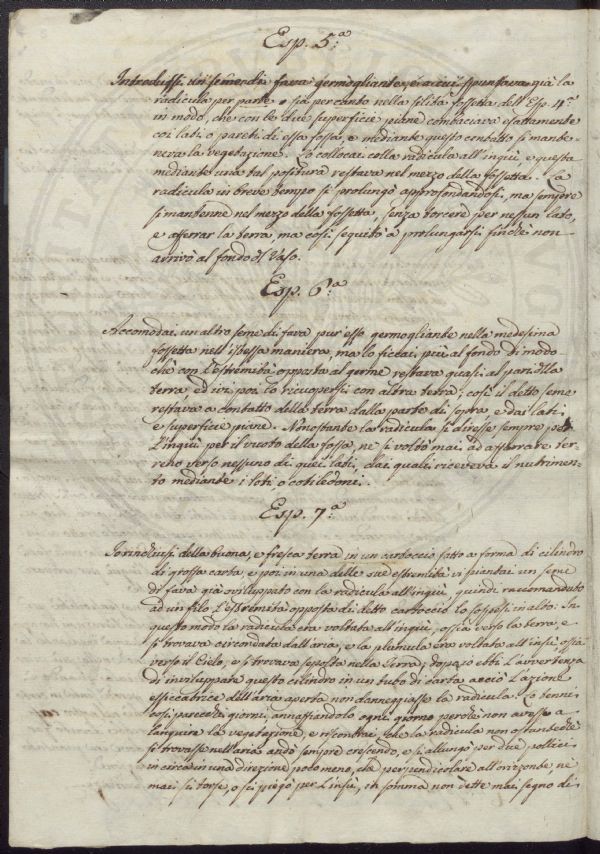 Esp. 5.ª
Introdussi un seme di fava germogliante, ei a cui spuntava già la
radicula per parte o sia per canto nella solita fossetta dell'Esp. 4.ª
in modo, che con le due superficie piane combaciava esattamente
coi lati, o pareti di essa fossa, e mediante questo contatto si mante-
neva la vegetazione. Lo collocai colla radicula all'ingiù, e questa
mediante una tal positura restava nel mezzo della fossetta. La
radicula in breve tempo si prolungò approfondandosi, ma sempre
si mantenne nel mezzo della fossetta, senza torcere per nessun lato,
e afferrar la terra, ma così seguitò a prolungarsi finchè non
arrivò al fondo del Vaso.
Esp. 6.ª
Accomodai un altro seme di fava pur esso germogliante nella medesima
fossetta nell'istessa maniera, ma lo ficcai più al fondo di modo-
chè con l'estremità opposta al germe restava quasi al pari della
terra, ed ivi poi lo ricuopersi con altra terra; così il detto seme
restava a contatto della terra dalla parte di sopra, e dai lati
e superficie piane. Nonostante la radicula si diresse sempre per
l'ingiù per il vuoto della fossa, nè si voltò mai ad afferrare ter-
reno verso nessuno di quei lati, dai quali riceveva il nutrimen-
to mediante i loti o cotiledoni.
Esp. 7.ª
Io rinchiusi della buona, e fresca terra in un cartoccio fatto a forma di cilindro
di grossa carta, e poi in una delle sue estremità vi piantai un seme
di fava già sviluppato con la radicula all'ingiù, quindi raccomandato
ad un filo l'estremità opposta di detto cartoccio lo sospesi in alto: In
questo modo la radicula era voltata all'ingiù, ossia verso la terra, e
si trovava circondata dall'aria, e la plumula era voltata all'insù, ossia
verso il Cielo, e si trovava sepolta nella Terra; dopo io ebbi l'avvertenza
di inviluppare questo cilindro in un tubo di carta acciò l'azione
essiccatrice dell'aria aperta non danneggiasse la radicula. Lo tenni
così parecchi giorni, annaffiandolo ogni giorno perchè non avesse a
languire la vegetazione, e riscontrai che la radicula non ostante che
si trovasse nell'aria andò sempre crescendo, e si allungò per due pollici
in circa in una direzione poco meno, che perpendicolare all'orizzonte, nè
mai si torse, o si piegò per l'insù, in somma non dette mai segno di